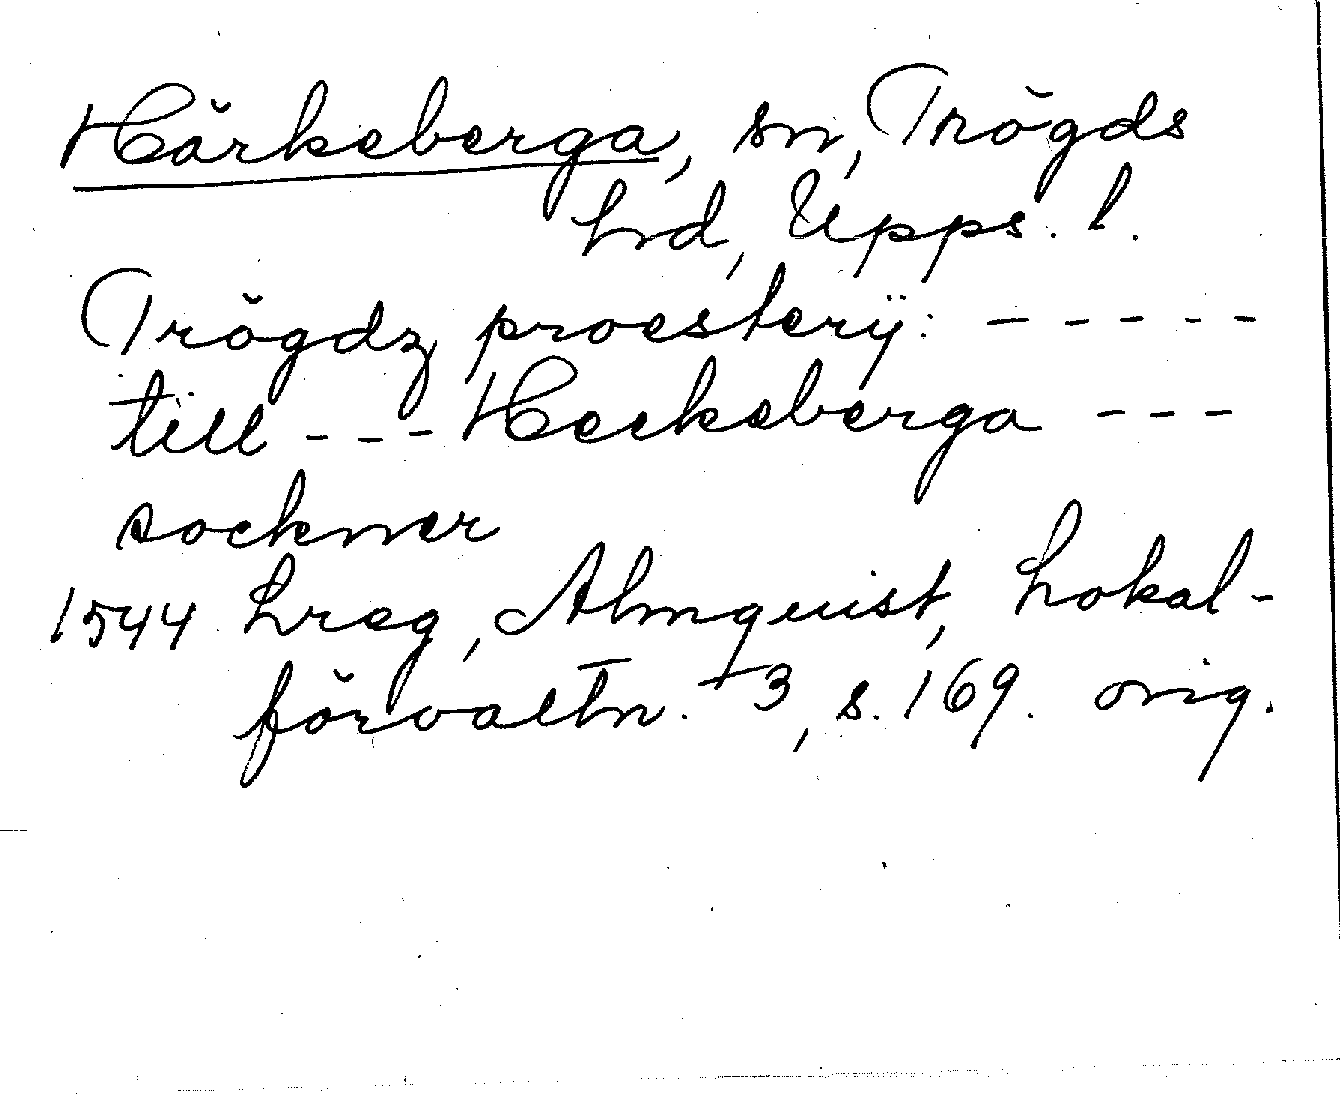 Härkeberga, sn, Trögds
hrd, Upps. l.
Trögdz proesterÿ: - - - - -
till - - - Heckeberga - - -
sockner
1544 Lreg, Almquist, Lokal-
förvaltn. 3, s. 169. orig.